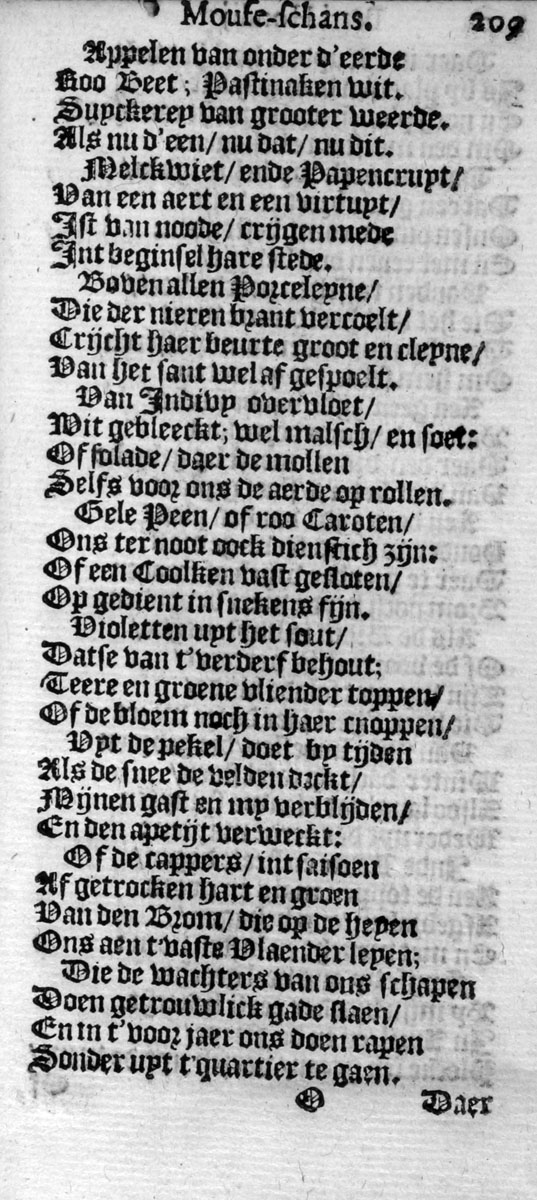 Moufe-schans. 209
Appelen van onder d'eerde
Roo Beet; Pastinaken wit.
Suyckerey van grooter weerde.
Als nu d'een/ nu dat/ nu dit.
Melckwiet/ ende Papencruyt/
Van een aert en een virtuyt/
Ist van noode/ crijgen mede
Int beginsel hare stede.
Boven allen Porceleyne/
Die der nieren brant vercoelt/
Crijcht haer beurte groot en cleyne/
Van het sant wel af gespoelt.
Van Indivy overvloet/
Wit gebleeckt; wel malsch/ en soet:
Of solade/ daer de mollen
Selfs voor ons de aerde op rollen.
Gele Peen/ of roo Caroten/
Ons ter noot oock dienstich zijn:
Of een Coolken vast gesloten/
Op gedient in snekens fijn.
Violetten uyt het sout/
Datse van t'verderf behout;
Teere en groene vliender toppen/
Of de bloem noch in haer cnoppen/
Uyt de pekel/ doet by tijden
Als de snee de velden deckt/
Mijnen gast en my verblijden/
En den apetijt verweckt:
Of de cappers/ int saisoen
Af getrocken hart en groen
Van den Brom/ die op de heyen
Ons aen t'vaste Vlaender leyen;
Die de wachters van ons schapen
Doen getrouwlick gade slaen/
En in t'voor jaer ons doen rapen
Sonder uyt t'quartier te gaen.
O Daer